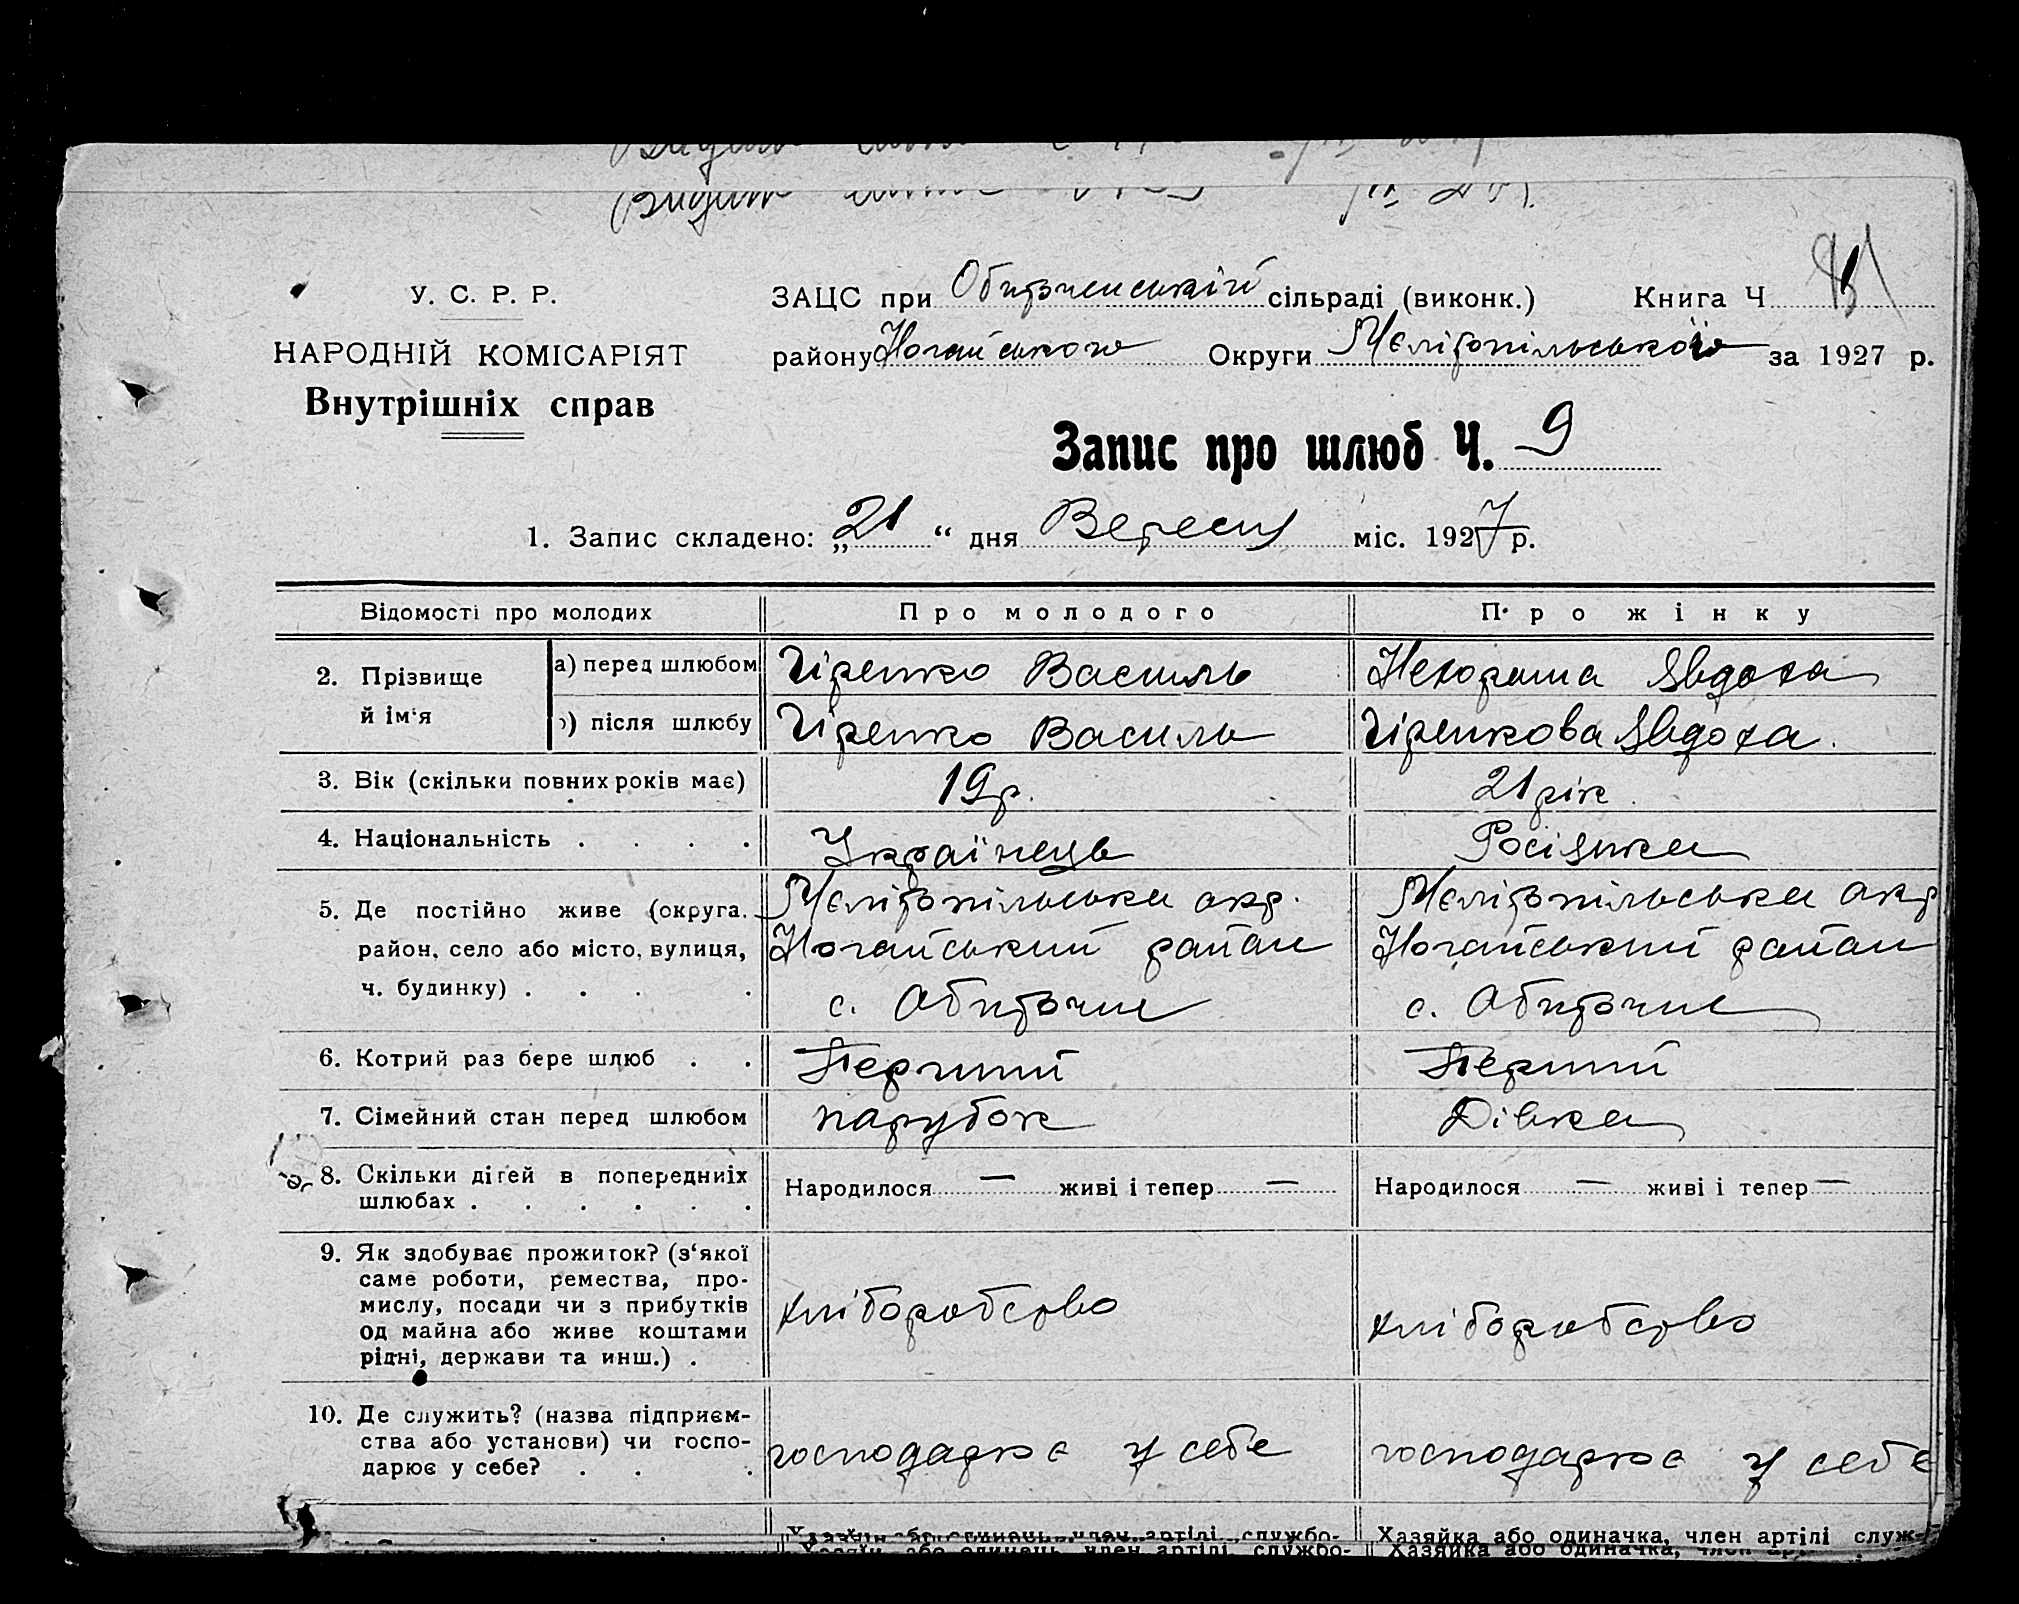 У. С. Р. Р.
НАРОДНІЙ КОМІСАРІЯТ
Внутрішніх справ
ЗАЦС при Обиточенській сільраді (виконк.) Книга Ч
району Ногайського Округи Мелітопільської за 1927 р.
Запис про шлюб Ч. 9
1. Запис складено: „21“ дня Вересня міс. 1927 р.
Відомості про молодих Про молодого Про жінку
2. Прізвище й ім'я
а) перед шлюбом Гіренко Василь Нехороша Явдоха
б) після шлюбу Гіренко Василь Гіренкова Явдоха.
3. Вік (скільки повних років має) 19 р. 21 рік
4. Національність . . . . Українець Росіянка
5. Де постійно живе (округа, район, село або місто, вулиця, ч. будинку) . . . .
Мелітопільська окр. Мелітопільська окр
Ногайський район Ногайський район
с. Обиточне с. Обиточне
6. Котрий раз бере шлюб . . Перший Перший
7. Сімейний стан перед шлюбом парубок Дівка
8. Скільки дітей в попередниіх шлюбах . . . . . .
Народилося — живі і тепер — Народилося — живі і тепер —
9. Як здобуває прожиток? (з'якої
саме роботи, ремества, про-
мислу, посади чи з прибутків
од майна або живе коштами
рідні, держави та инш.) .
хліборобство хліборобство
10. Де служить? (назва підприєм-
ства або установи) чи госпо-
дарює у себе? . . .
господарює у себе господарює у себе
Хазяїн або одинець, член артілі, службо- Хазяйка або одиначка, член артілі служ-